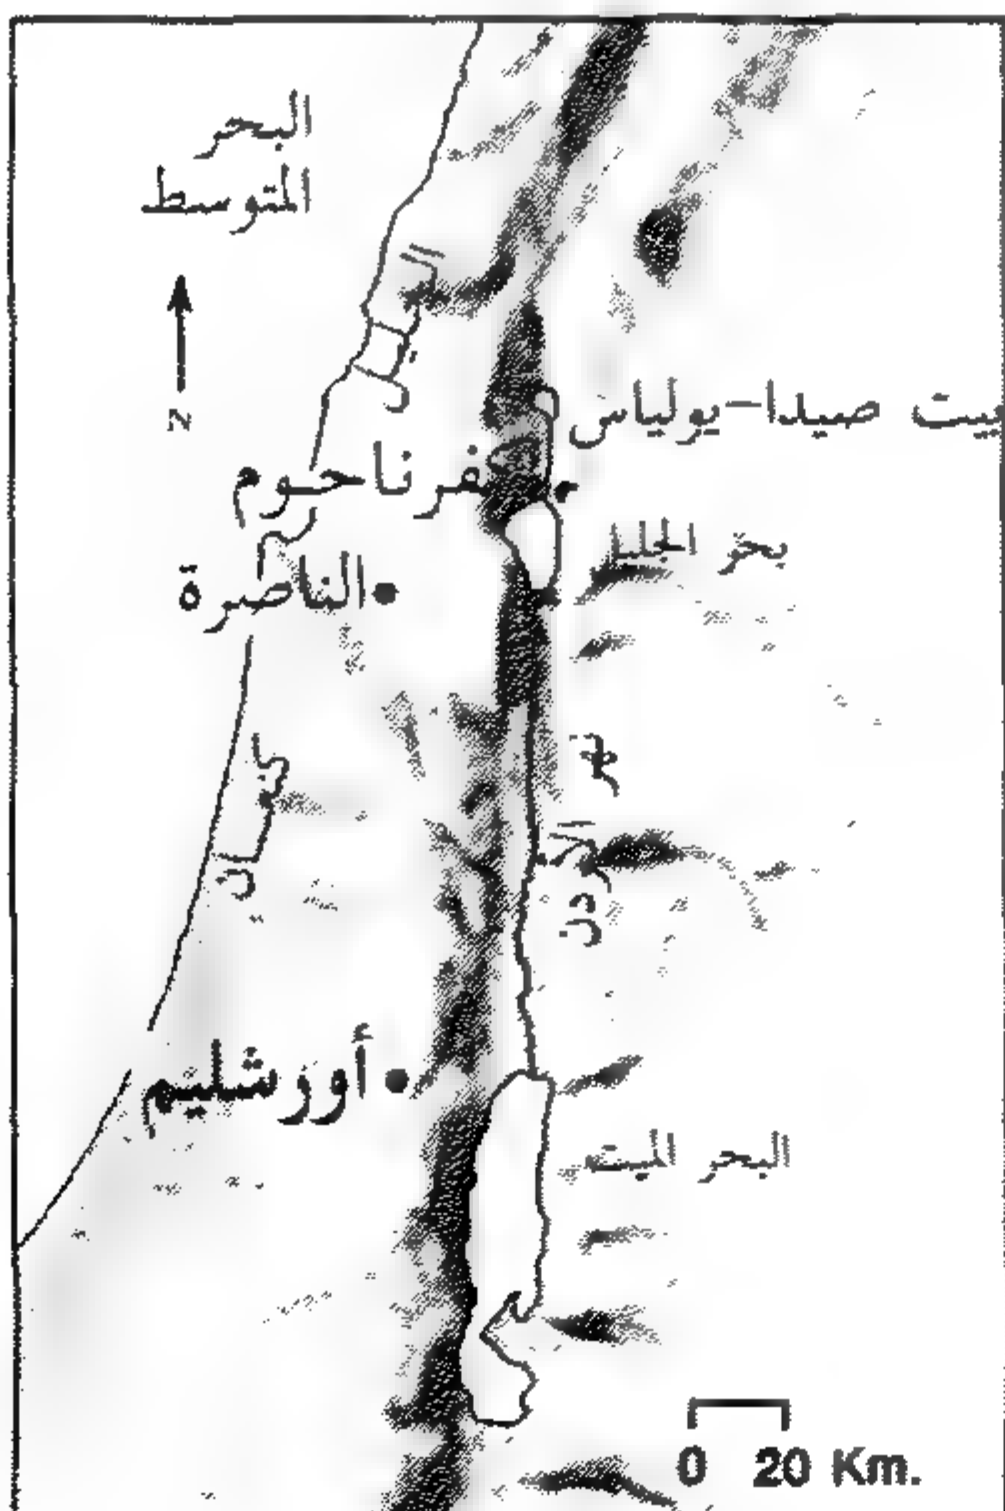 البحر
المتوسط
N
بيت صيدا-يولياس
كفرناحوم
بحر الجليل
الناصرة
كنعان
نهر
الأردن
أورشليم
البحر الميت
0 20 Km.